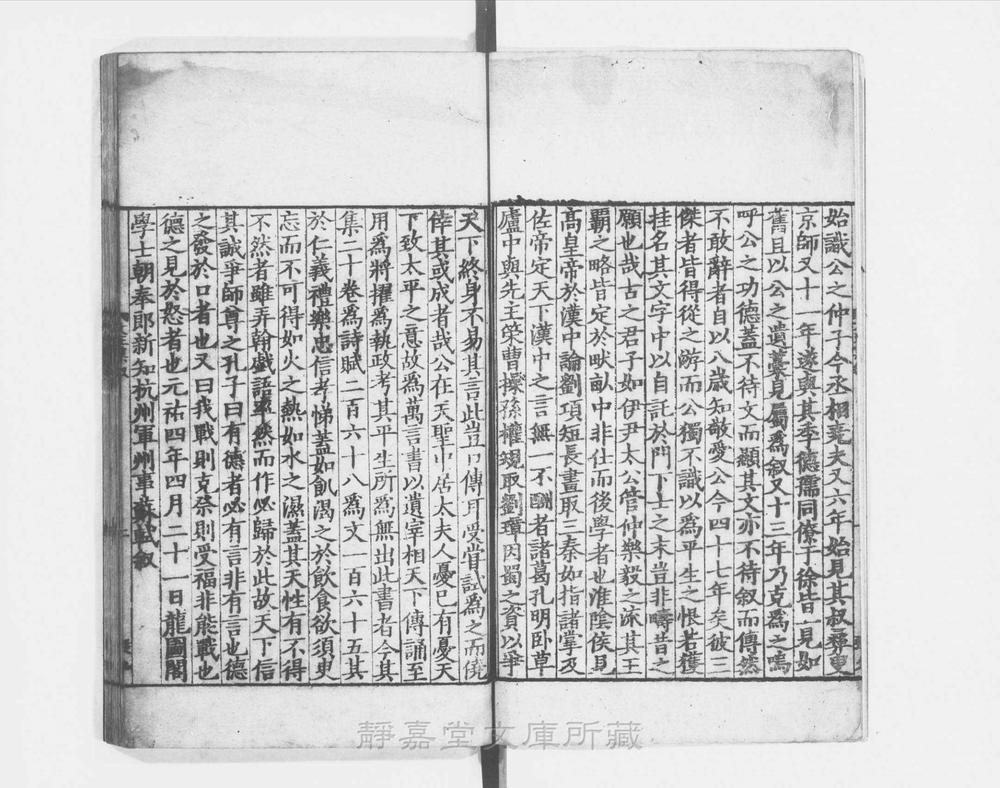 始識公之仲子今丞相堯夫又六年始見其叔彝叟
京師又十一年遂與其季德孺同僚于徐皆一見如
舊且以公之遺藁見屬爲叙又十三年乃克爲之嗚
呼公之功德蓋不待文而顯其文亦不待叙而傳然
不敢辭者自以八歲知敬愛公今四十七年矣彼三
傑者皆得從之游而公獨不識以爲平生之恨若獲
挂名其文字中以自託於門下士之末豈非疇昔之
願也哉古之君子如伊尹太公管仲樂毅之流其王
霸之略皆定於畎畝中非仕而後學者也淮陰侯見
高皇帝於漢中論劉項短長畫取三秦如指諸掌及
佐帝定天下漢中之言無一不酬者諸葛孔明卧草
廬中與先主策曹操孫權規取劉璋因蜀之資以爭
天下終身不易其言此豈口傳耳受嘗試爲之而僥
倖其或成者哉公在天聖中居太夫人憂已有憂天
下致太平之意故爲萬言書以遺宰相天下傳誦至
用爲將擢爲執政考其平生所爲無出此書者今其
集二十卷爲詩賦二百六十八爲文一百六十五其
於仁義禮樂忠信孝悌蓋如飢渴之於飲食欲須臾
忘而不可得如火之熱如水之濕蓋其天性有不得
不然者雖弄翰戲語率然而作必歸於此故天下信
其誠爭師尊之孔子曰有德者必有言非有言也德
之發於口者也又曰我戰則克祭則受福非能戰也
德之見於怒者也元祐四年四月二十一日龍圖閣
學士朝奉郎新知杭州軍州事蘇軾叙
靜嘉堂文庫所藏